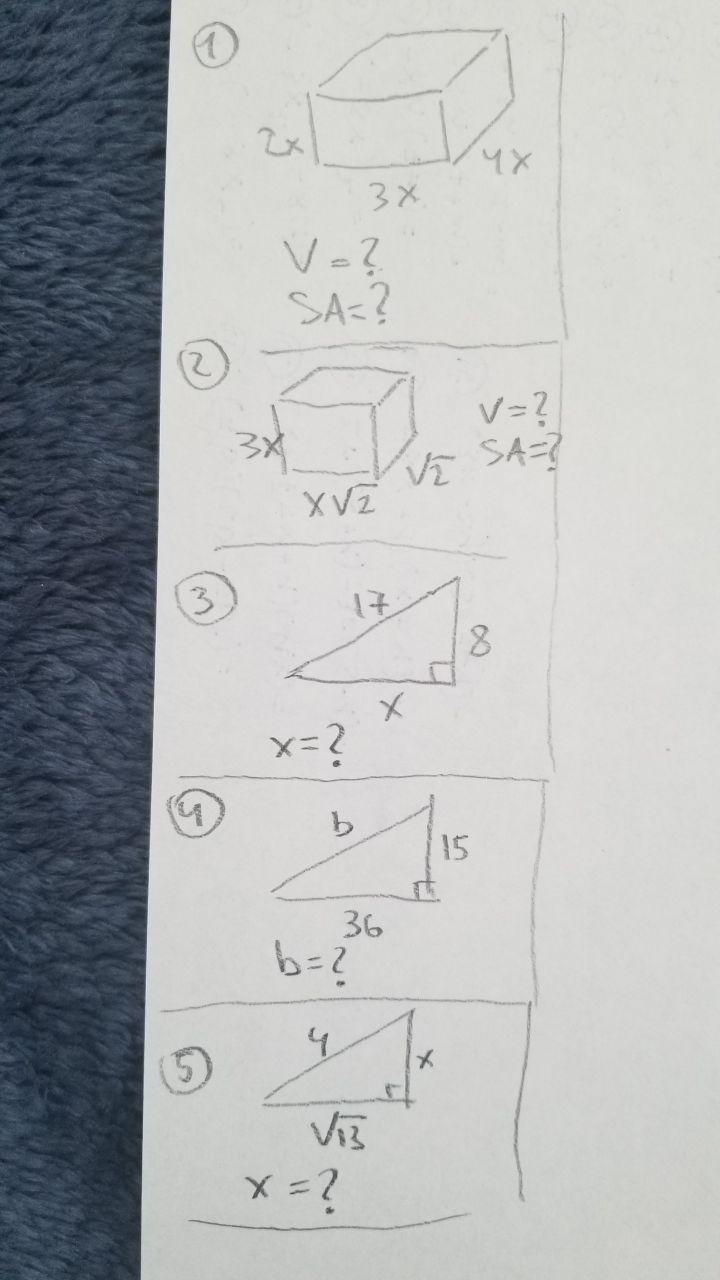 ①
2x
4x
3x
V = ?
SA=?
②
3x
√2
x√2
V=?
SA=?
③
17
8
x
x=?
④
b
15
36
b=?
⑤
4
x
√13
x = ?